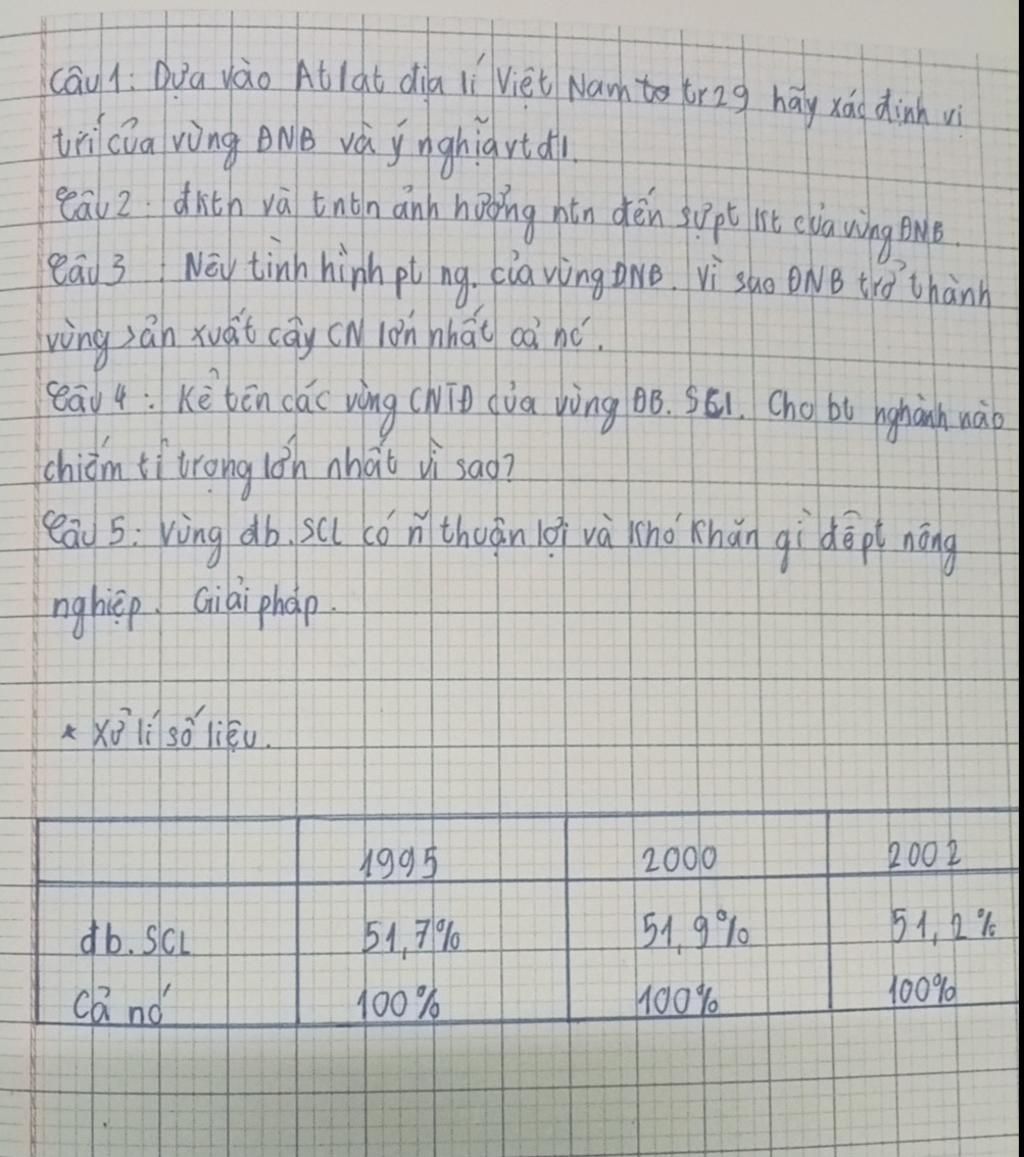 Câu 1: Dựa vào Atlat địa lí Việt Nam tr29 hãy xác định vị
trí của vùng ĐNB và ý nghĩa vtđl.
Câu 2: đktn và tntn ảnh hưởng ntn đến sự pt kt của vùng ĐNB.
Câu 3: Nêu tình hình pt ng. của vùng ĐNB. Vì sao ĐNB trở thành
vùng sản xuất cây CN lớn nhất cả nc'.
Câu 4: Kể tên các vùng CNTĐ của vùng ĐB. SCL. Cho bt nghành nào
chiếm tỉ trọng lớn nhất vì sao?
Câu 5: Vùng đb. SCL có ñ thuận lợi và khó khăn gì để pt nông
nghiệp. Giải pháp.
* Xử lí số liệu.
1995 2000 2002
đb. SCL 51,7% 51,9% 51,2%
Cả nc' 100% 100% 100%